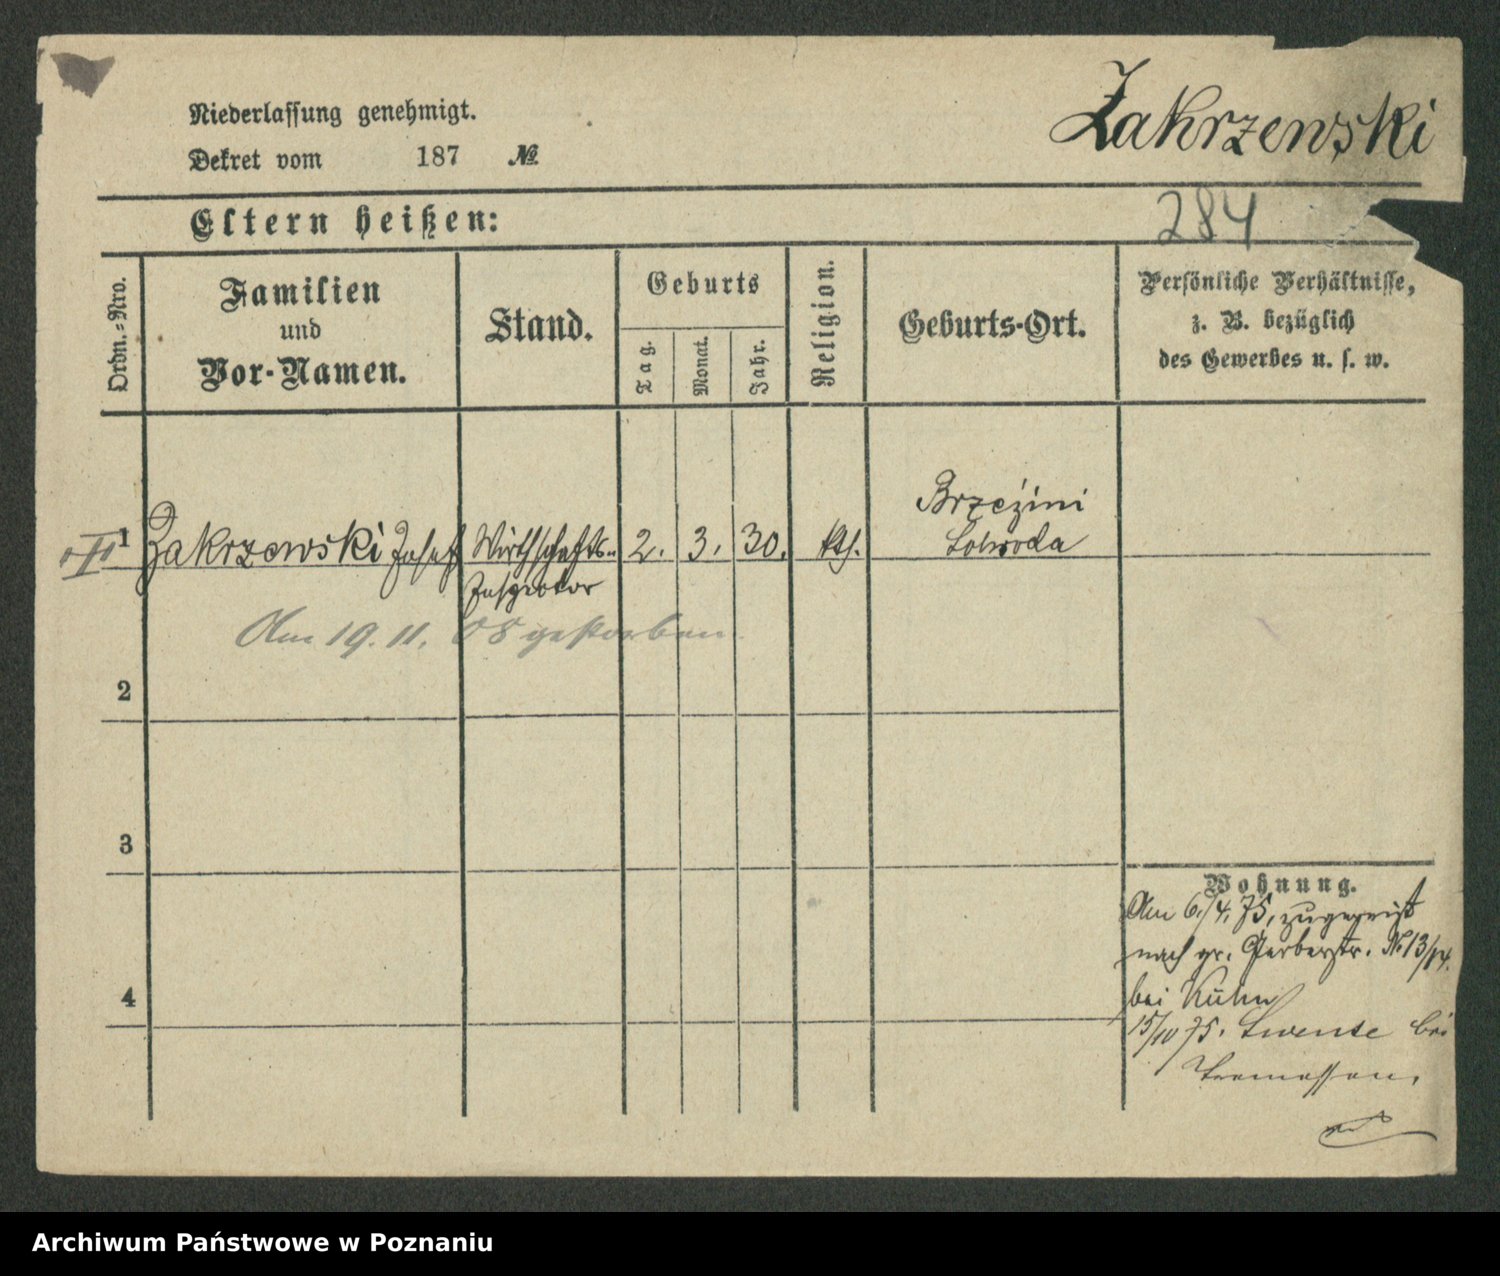 Zakrzewski
Niederlassung genehmigt.
Dekret vom 187 №
284
Eltern heißen:
Ordn.-Nro.
Familien
und
Vor-Namen.
Stand.
Geburts
Tag.
Monat.
Jahr.
Religion.
Geburts-Ort.
Persönliche Verhältnisse,
z. B. bezüglich
des Gewerbes u. s. w.
1 Zakrzewski Josef Wirthschafts- 2. 3. 30. kth. Brzezini
Inspector
Am 19. 11. 08 gestorben.
2
3
4
Wohnung.
Am 6/4. 75. zugereist
nach gr. Gerberstr. N. 13/14.
bei Kuhn
15/10 75. bei
Tremessen.
Archiwum Państwowe w Poznaniu